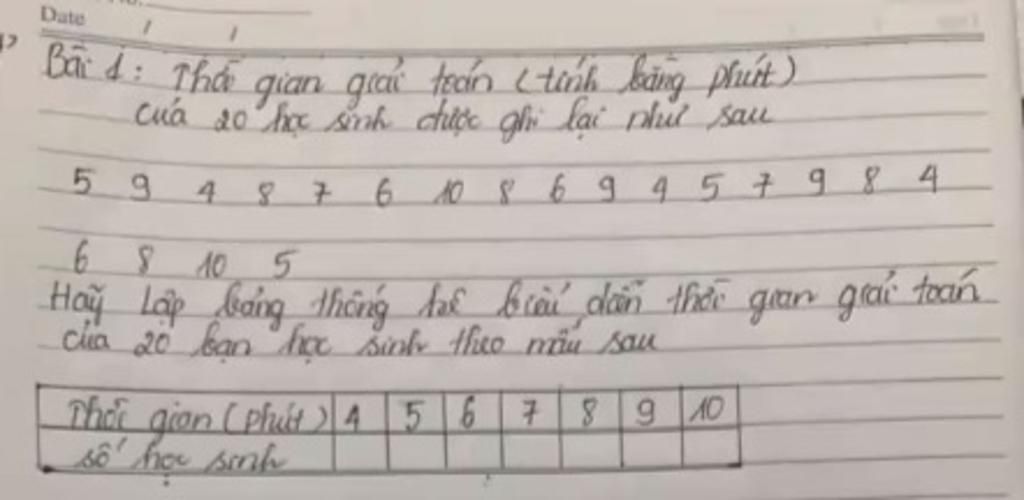 Date / /
Bài 1: Thời gian giải toán (tính bằng phút)
của 20 học sinh được ghi lại như sau
5 9 4 8 7 6 10 8 6 9 4 5 7 9 8 4
6 8 10 5
Hãy Lập bảng thống kê biểu diễn thời gian giải toán
của 20 bạn học sinh theo mẫu sau
Thời gian (phút) 4 5 6 7 8 9 10
số học sinh